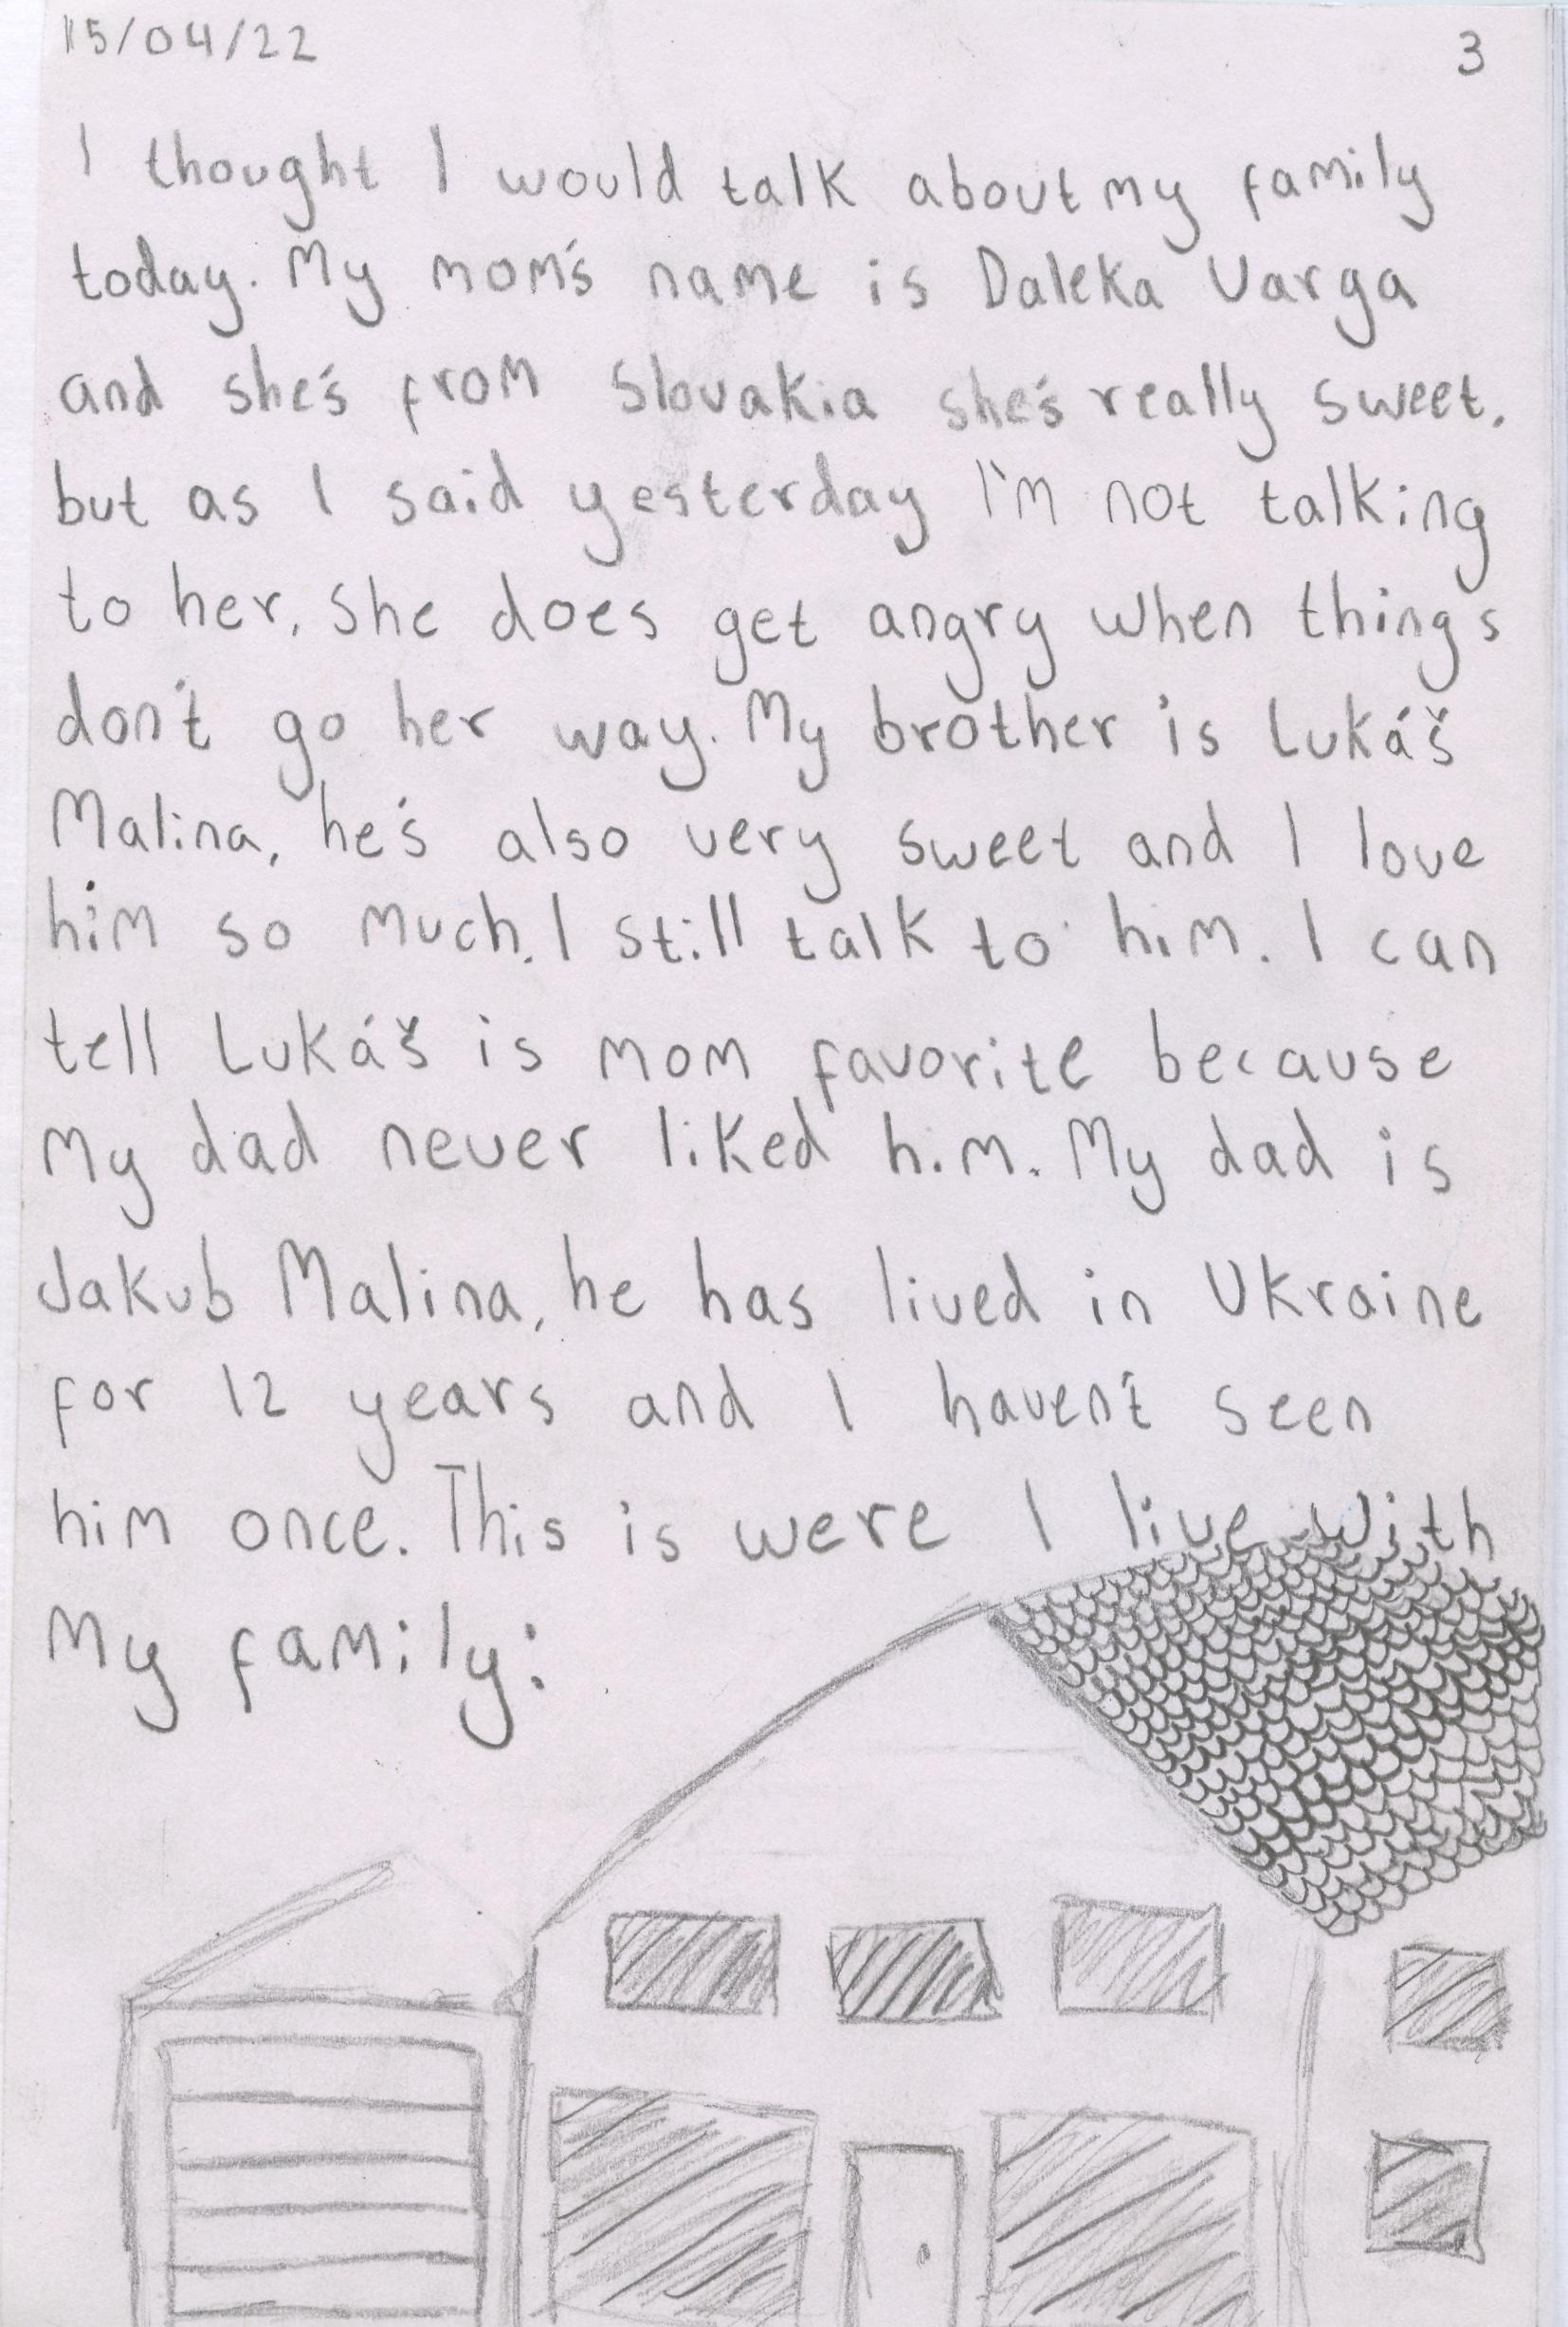 15/04/22
3
I thought I would talk about my family
today. My mom's name is Daleka Varga
and she's from Slovakia she's really sweet.
but as I said yesterday I'm not talking
to her. She does get angry when things
don't go her way. My brother is Lukáš
Malina, he's also very sweet and I love
him so much. I still talk to him. I can
tell Lukáš is mom favorite because
my dad never liked him. My dad is
Jakub Malina, he has lived in Ukraine
for 12 years and I haven't seen
him once. This is were I live with
my family: